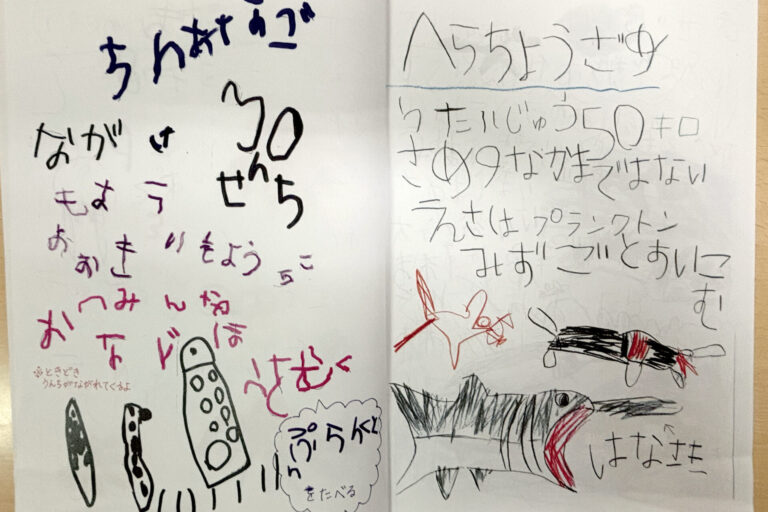 ちんあなご
ながさ 30
せんち
もよう
おおきいもようちこ
おへみんなおなじほうをむく
※ときどき
うんちがながれてくるよ
ぷらんくとん
をたべる
へらちょうざめ
たいじゅう50キロ
さめのなかまではない
えさは プランクトン
みずごとすいこ
む
はなさき